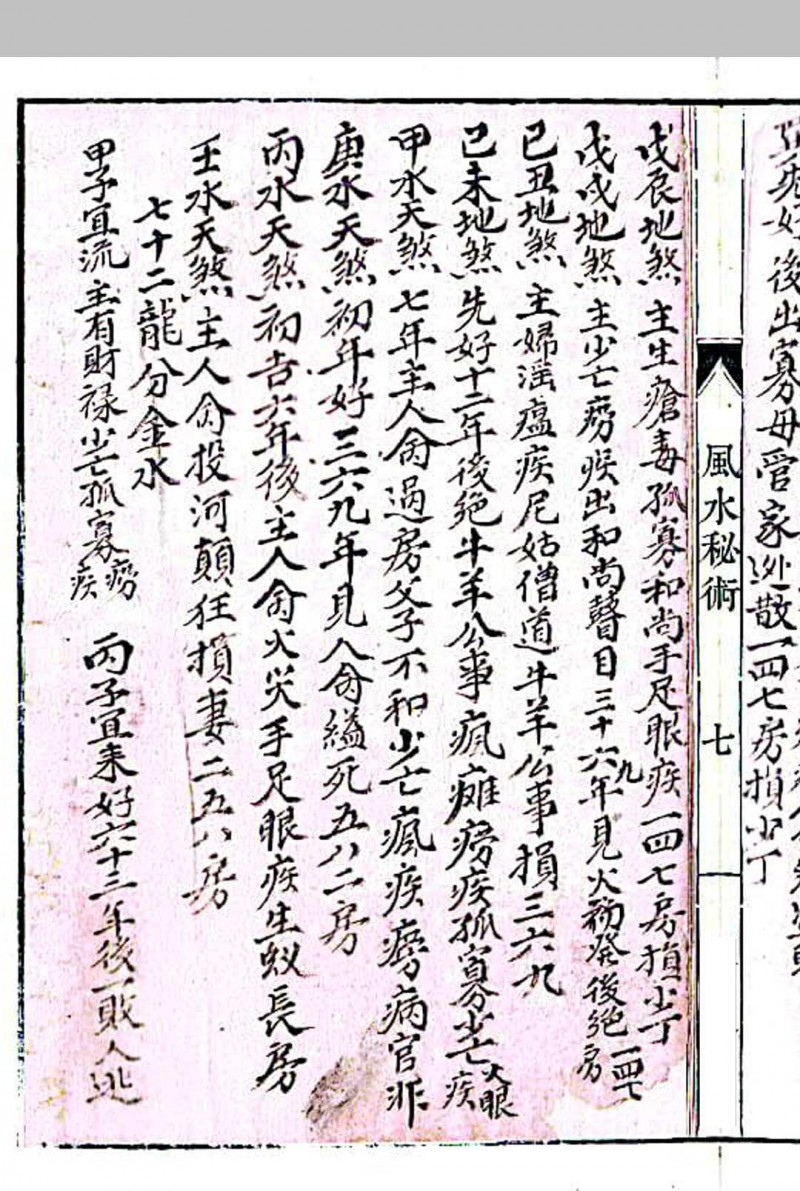 後出寡母管家逃散一四七房損少丁
風水秘術
七
戊辰地煞主生瘡毒孤寡和尚手足眼疾一四七房損少丁
戊戌地煞主少亡癆疾出和尚瞽目三十六九年見火初發後絕一四七房
己丑地煞主婦滛瘟疾尼姑僧道牛羊公事損三六九
己未地煞先好十二年後絕牛羊公事瘋癱癆疾孤寡少亡火眼疾
甲水天煞七年主人命過房父子不和少亡瘋疾癆病官非
庚水天煞初年好三六九年見人命縊死五八二房
丙水天煞初吉六年後主人命火災手足眼疾生蚁長房
壬水天煞主人命投河顛狂損妻二五八房
七十二龍分金水
甲子宜流主有財祿少亡孤寡癆疾 丙子宜来好六十三年後一敗人逃